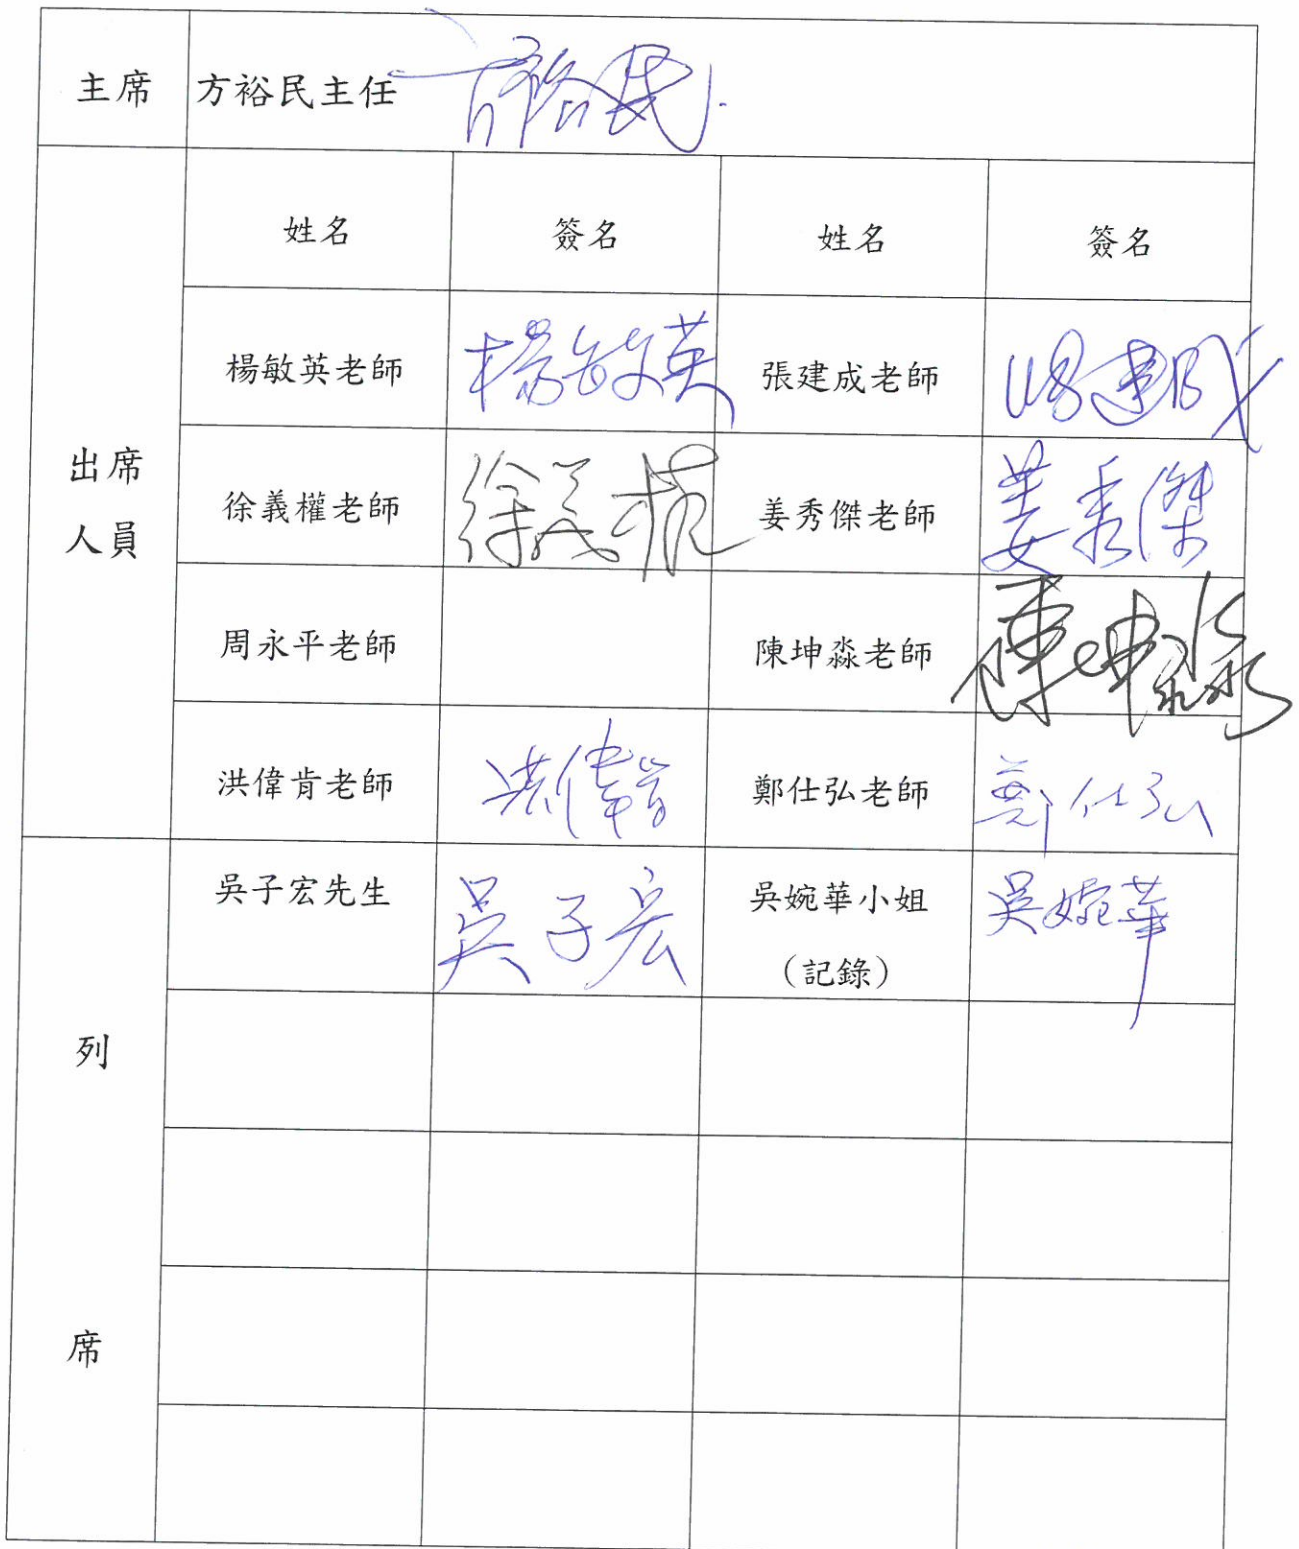 主席 方裕民主任 方裕民
姓名 簽名 姓名 簽名
楊敏英老師 楊敏英 張建成老師 張建成
出席
人員
徐義權老師 徐義權 姜秀傑老師 姜秀傑
周永平老師 陳坤淼老師 陳坤淼
洪偉肯老師 洪偉肯 鄭仕弘老師 鄭仕弘
吳子宏先生 吳子宏 吳婉華小姐 吳婉華
(記錄)
列
席